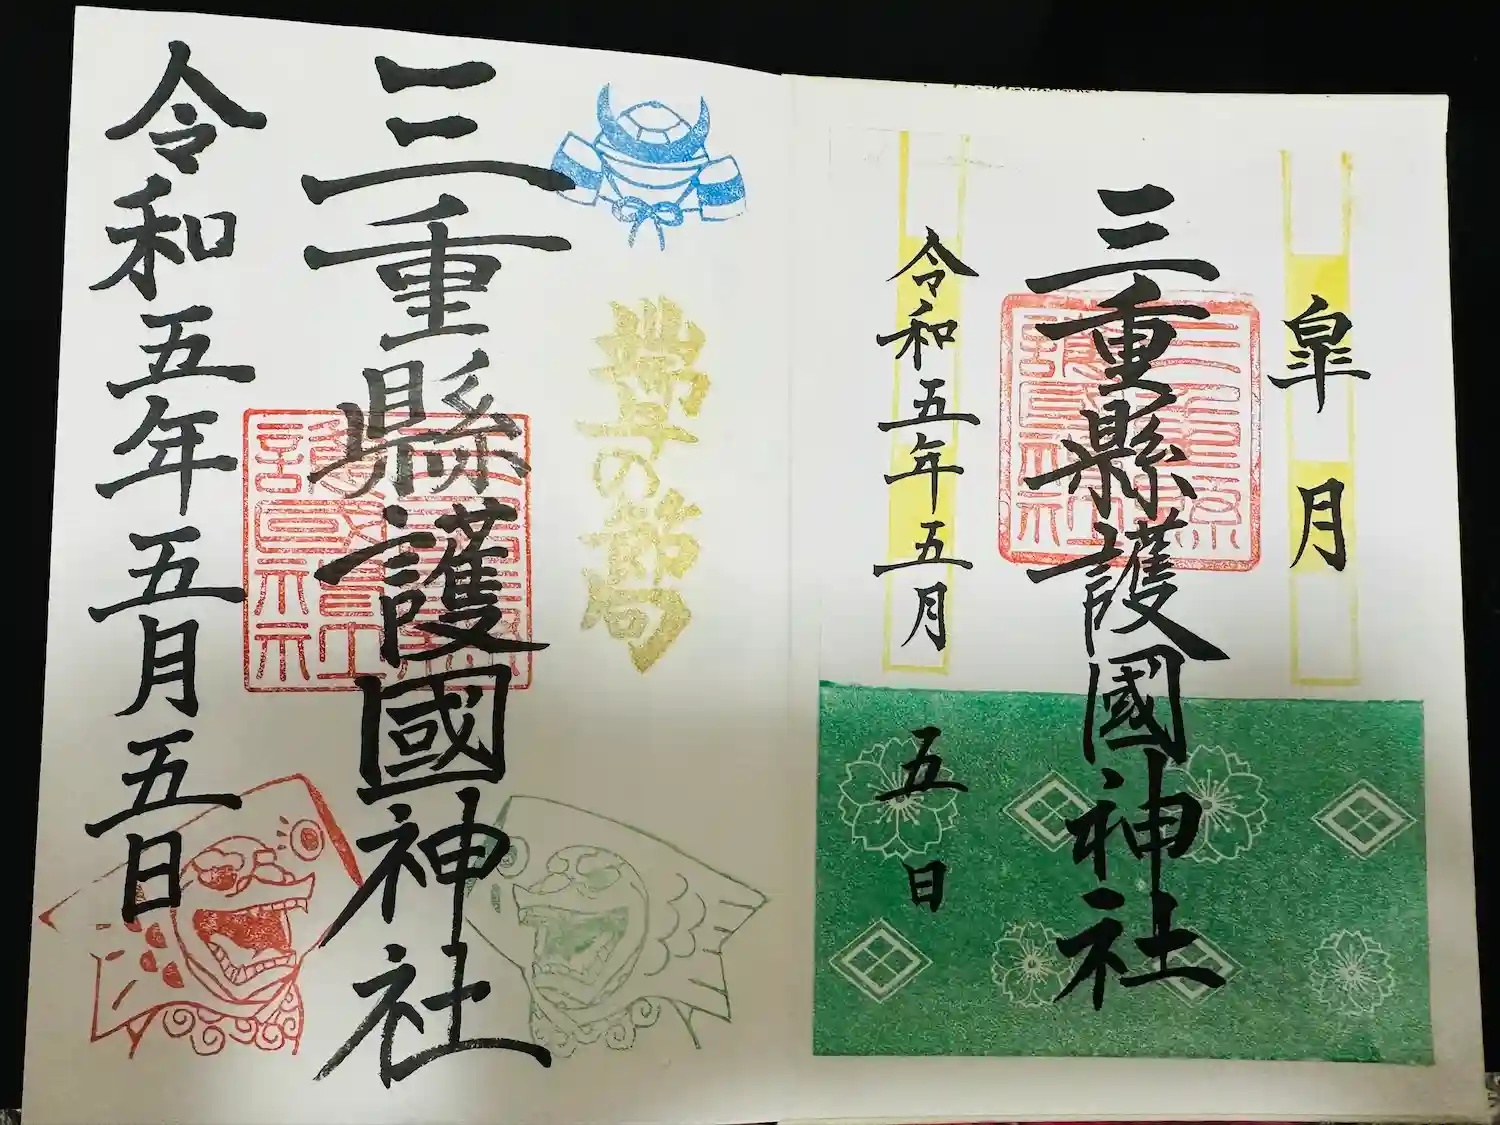 皐月
三重縣護國神社
令和五年五月五日
端午の節句
三重縣護國神社
令和五年五月五日